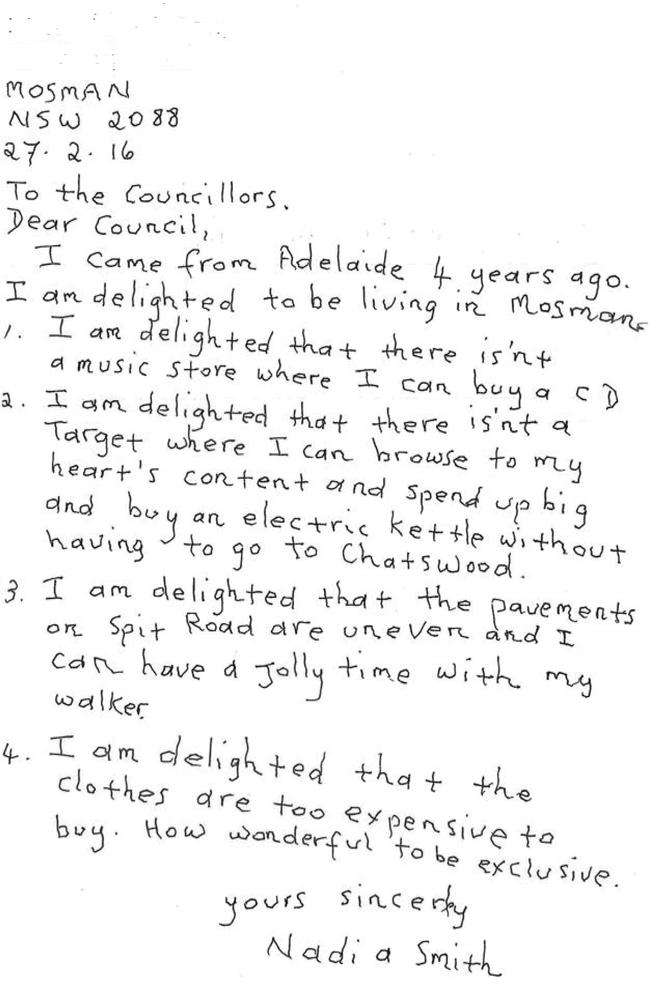 MOSMAN
NSW 2088
27. 2. 16
To the Councillors.
Dear Council,
I came from Adelaide 4 years ago.
I am delighted to be living in Mosman.
1. I am delighted that there is'nt
a music store where I can buy a CD
2. I am delighted that there is'nt a
Target where I can browse to my
heart's content and spend up big
and buy an electric kettle without
having to go to Chatswood.
3. I am delighted that the pavements
on Spit Road are uneven and I
can have a jolly time with my
walker.
4. I am delighted that the
clothes are too expensive to
buy. How wonderful to be exclusive.
yours sincerly
Nadia Smith